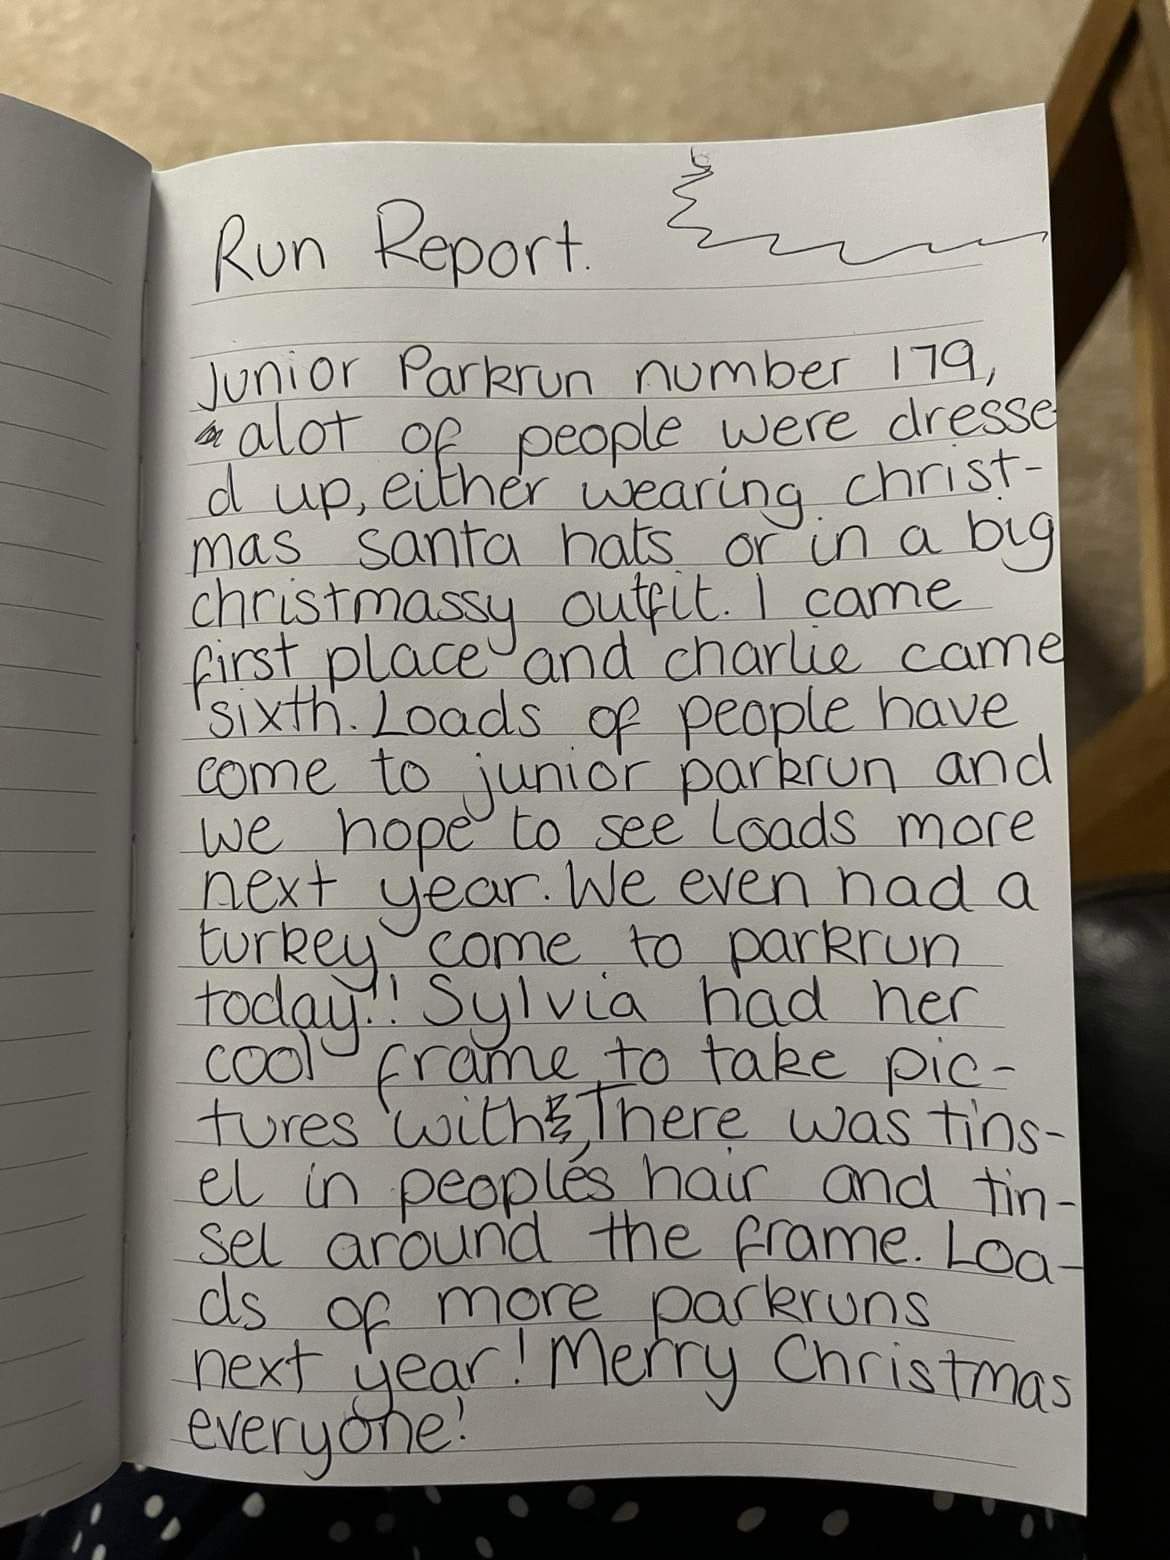 Run Report.
Junior Parkrun number 179,
alot of people were dresse
d up, either wearing christ-
mas santa hats or in a big
christmassy outfit. I came
first place and charlie came
sixth. Loads of people have
come to junior parkrun and
we hope to see loads more
next year. We even had a
turkey come to parkrun
today!! Sylvia had her
cool frame to take pic-
tures with, There was tins-
el in people's hair and tin-
sel around the frame. Loa-
ds of more parkruns
next year! Merry Christmas
everyone!